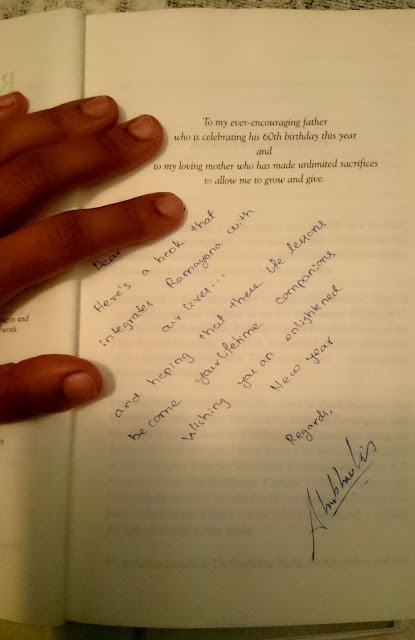 To my ever-encouraging father
who is celebrating his 60th birthday this year
and
to my loving mother who has made unlimited sacrifices
to allow me to grow and give.
Dear
Here's a book that
integrates Ramayana with
our lives...
and hoping that these life lessons
become your lifetime companions
Wishing you an enlightened
New year
Regards,
and
work.